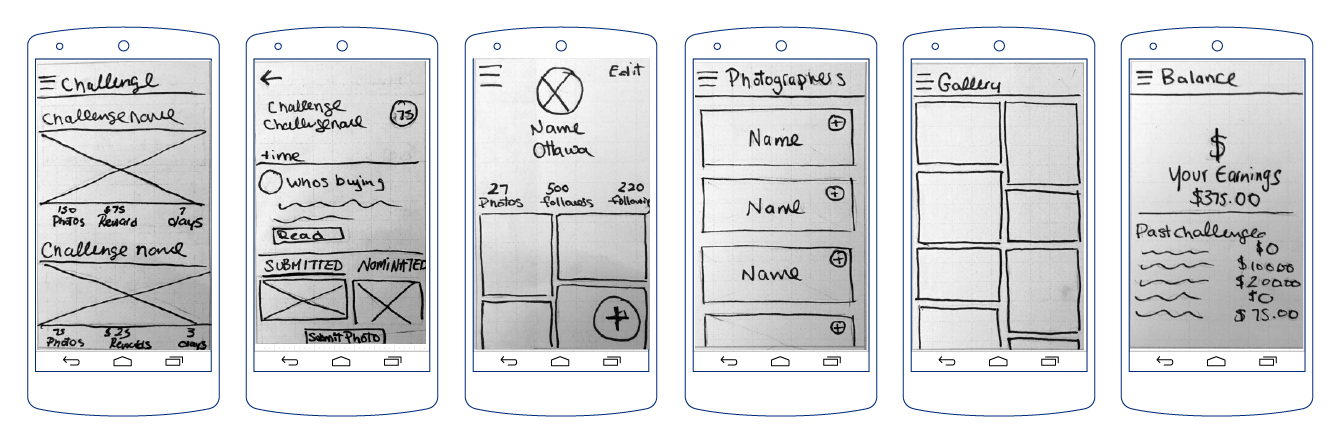 Challenge
Challenge name
150 $75 7
Photos Reward days
Challenge name
75 $25 3
Photos Rewards days
Challenge
Challenge name
75
time
Whos buying
Read
SUBMITTED NOMINATED
Submit Photo
Edit
Name
Ottawa
27 500 220
Photos followers following
Photographers
Name
Name
Name
Gallery
Balance
$
Your Earnings
$375.00
Past Challenges
$0
$100.00
$200.00
$0
$75.00